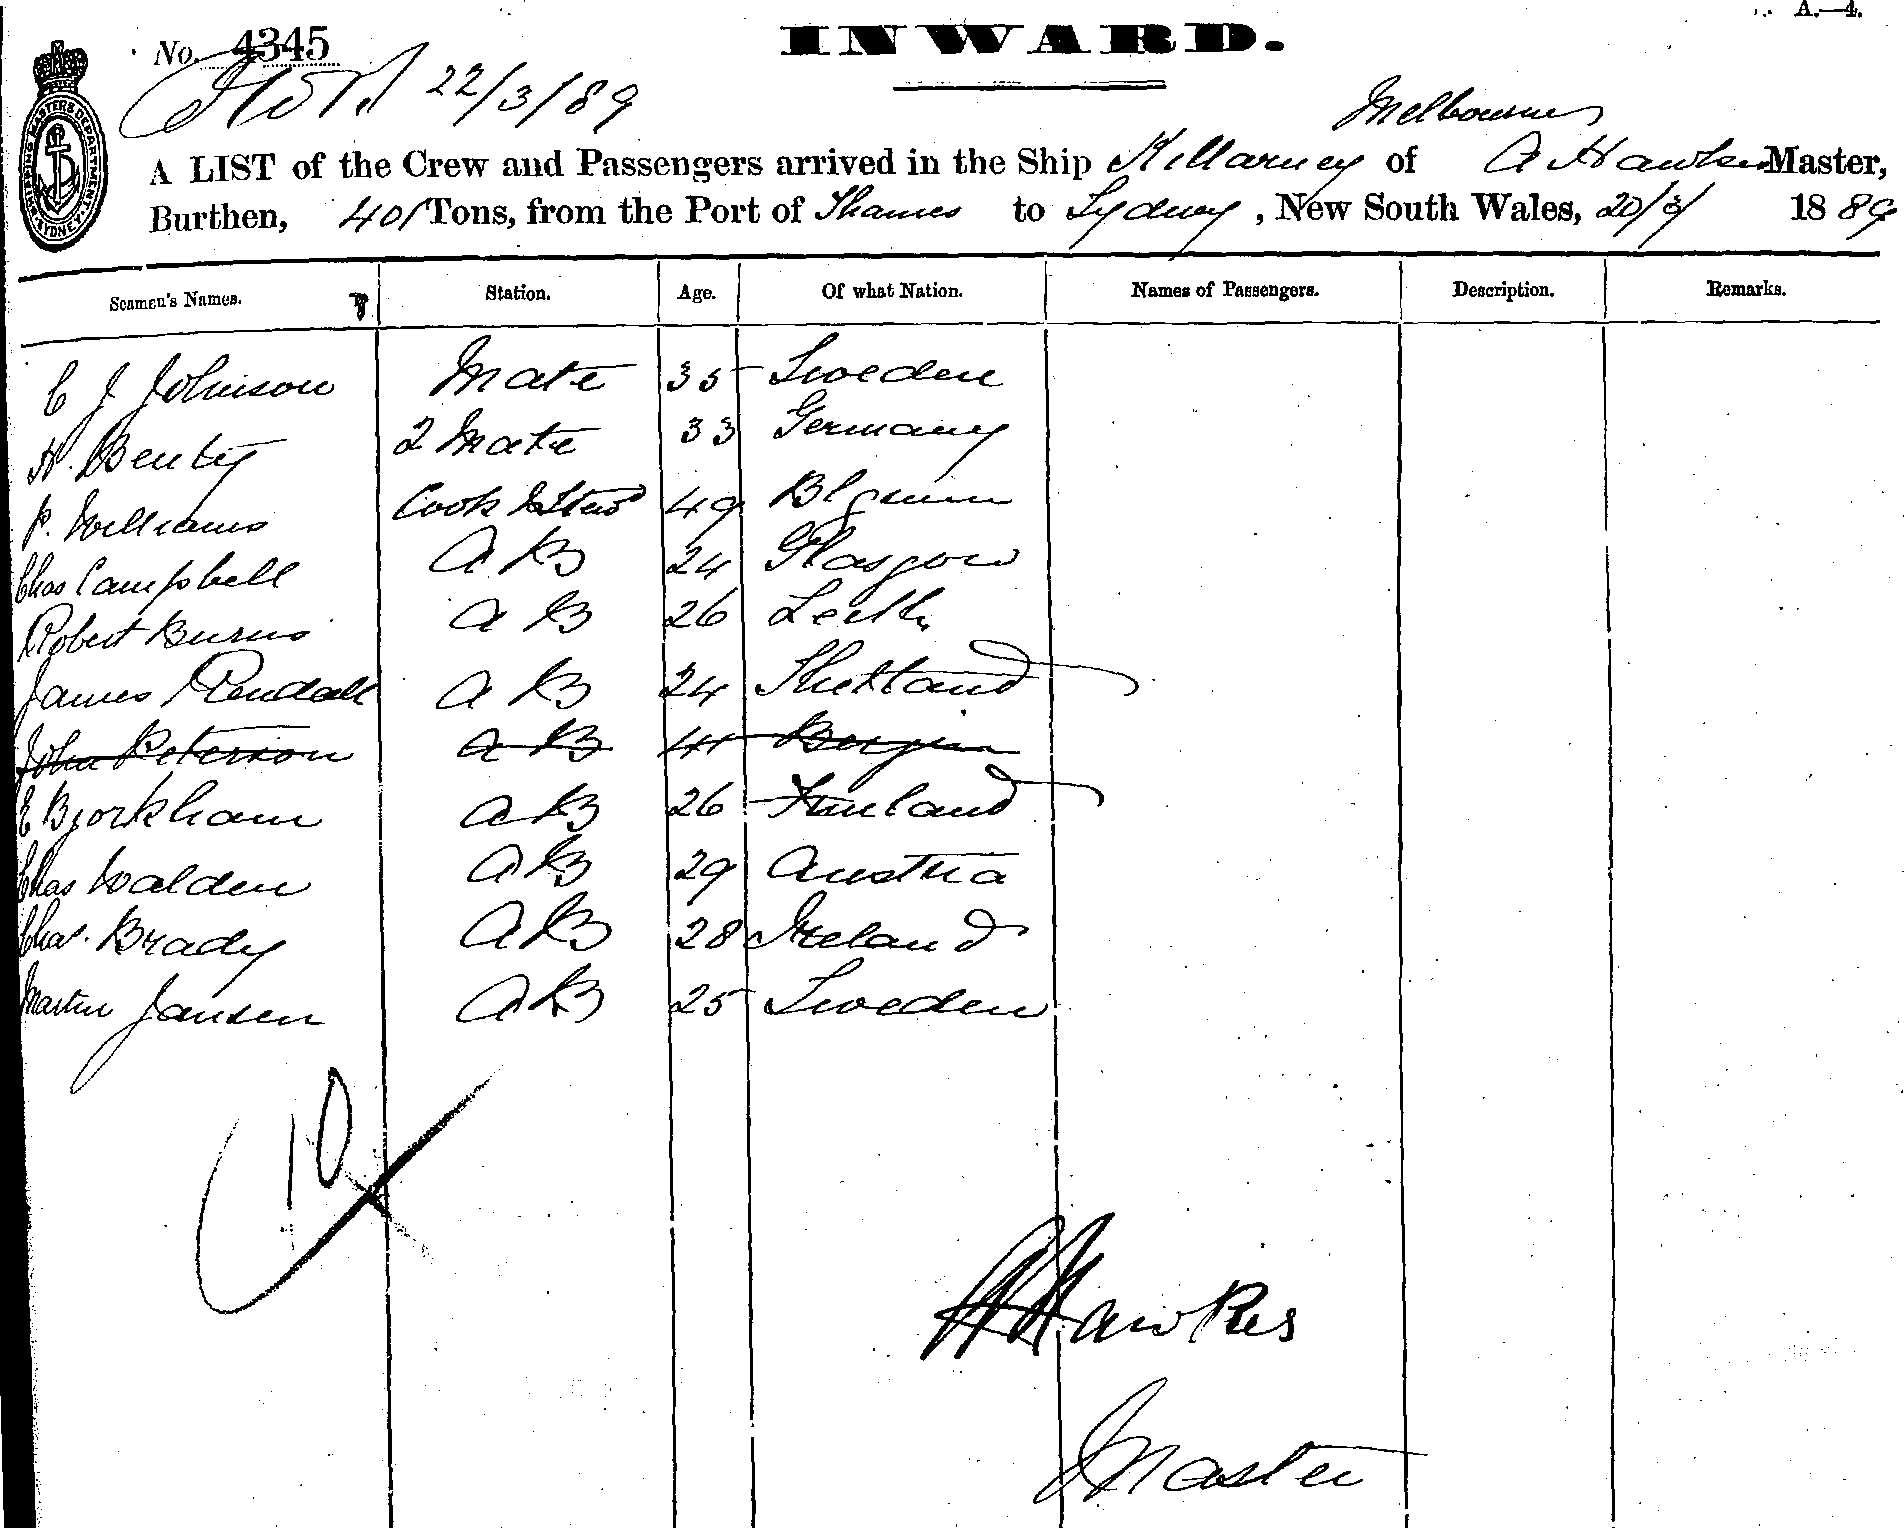 A.—4.
INWARD.
No. 4345
22/3/89
Melbourne
A LIST of the Crew and Passengers arrived in the Ship Killarney of A Hawkes Master,
Burthen, 401 Tons, from the Port of Thames to Sydney, New South Wales, 20/3/ 1889
SHIPPING MASTERS DEPARTMENT SYDNEY
Seamen's Names. Station. Age. Of what Nation. Names of Passengers. Description. Remarks.
C J Johnson Mate 35 Sweden
H. Benty 2 Mate 33 Germany
P. Williams Cook & Stew 49
Chas Campbell AB 24 Glasgow
Robert Burns AB 26 Leith
James Rendall AB 24 Shetland
John Peterson AB 41
E Bjorkham AB 26 Finland
Chas Walden AB 29 Austria
Chas. Brady AB 28 Ireland
Martin Jansen AB 25 Sweden
10
A Hawkes
Master